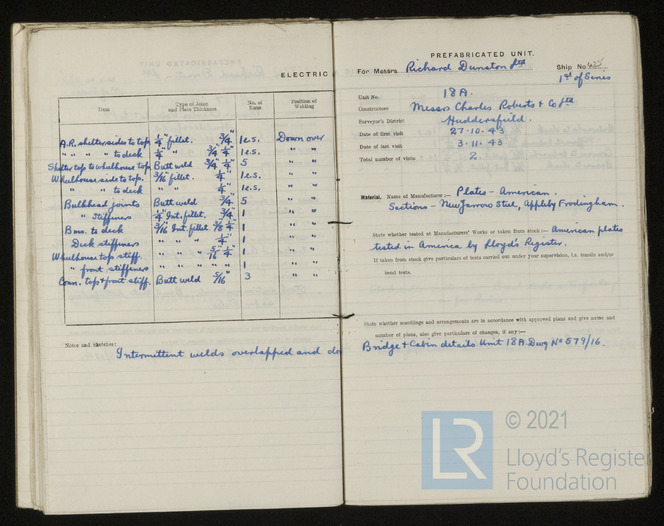 ELECTRIC
Item
Type of Joint and Plate Thickness
No. of Runs
Position of Welding
A.R. shelter sides to top 1/4" fillet. 3/4" 1e.s. Down over
" " " " to deck 1/4" " 3/4" 1/4" 1e.s. " "
Shelter top to wheelhouse top Butt weld 3/4" 1/4" 5 " "
Wheelhouse side to top. 3/16" fillet. 1/4" 1e.s. " "
" " to deck " " 1/4" 1e.s. " "
Bulkhead joints Butt weld 3/4" 5 " "
" stiffeners 1/4" Int. fillet. 3/4" 1 " "
to deck 3/16" Int. fillet 1 " "
Deck stiffeners " " " " 1/4" 1 " "
Wheelhouse top stiff. " " " 5/16" 1/4" 1 " "
" front stiffeners " " " " 1 " "
Conn. top & front stiff. Butt weld 5/16" 3 " "
Notes and sketches:
Intermittent welds overlapped and do
PREFABRICATED UNIT.
For Messrs Richard Dunston Ltd Ship No
1st of Series
Unit No. 18A.
Constructors Messrs Charles Roberts & Co Ltd
Surveyor's District Huddersfield.
Date of first visit 27-10-43
Date of last visit 3-11-43
Total number of visits 2.
Material. Name of Manufacturer :— Plates - American.
Sections - New Jarrow Steel, Appleby Frodingham.
State whether tested at Manufacturers' Works or taken from stock :— American plates
tested in America by Lloyd's Register.
If taken from stock give particulars of tests carried out under your supervision, i.e. tensile and/or
bend tests.
State whether scantlings and arrangements are in accordance with approved plans and give name and
number of plans, also give particulars of changes, if any :—
Bridge & Cabin details Unit 18A. Dwg No 579/16.
© 2021
LR
Lloyd's Register
Foundation